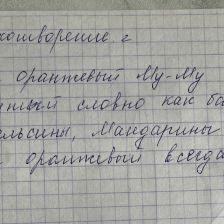 хотворение. 2
оранжевый Му-Му
словно как ба
ельсины, Мандарины
оранжевый всегда